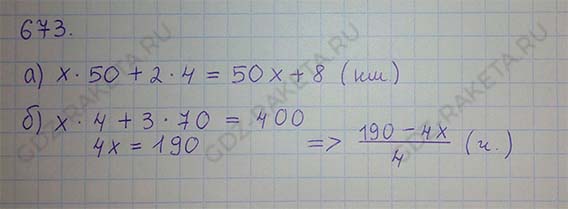 673.
а) x · 50 + 2 · 4 = 50x + 8 (км)
б) x · 4 + 3 · 70 = 400
4x = 190 => (190 - 4x)/4 (ч.)
GDZ-RAKETA.RU
GDZ-RAKETA.RU
GDZ-RAKETA.RU
GDZ-RAKETA.RU